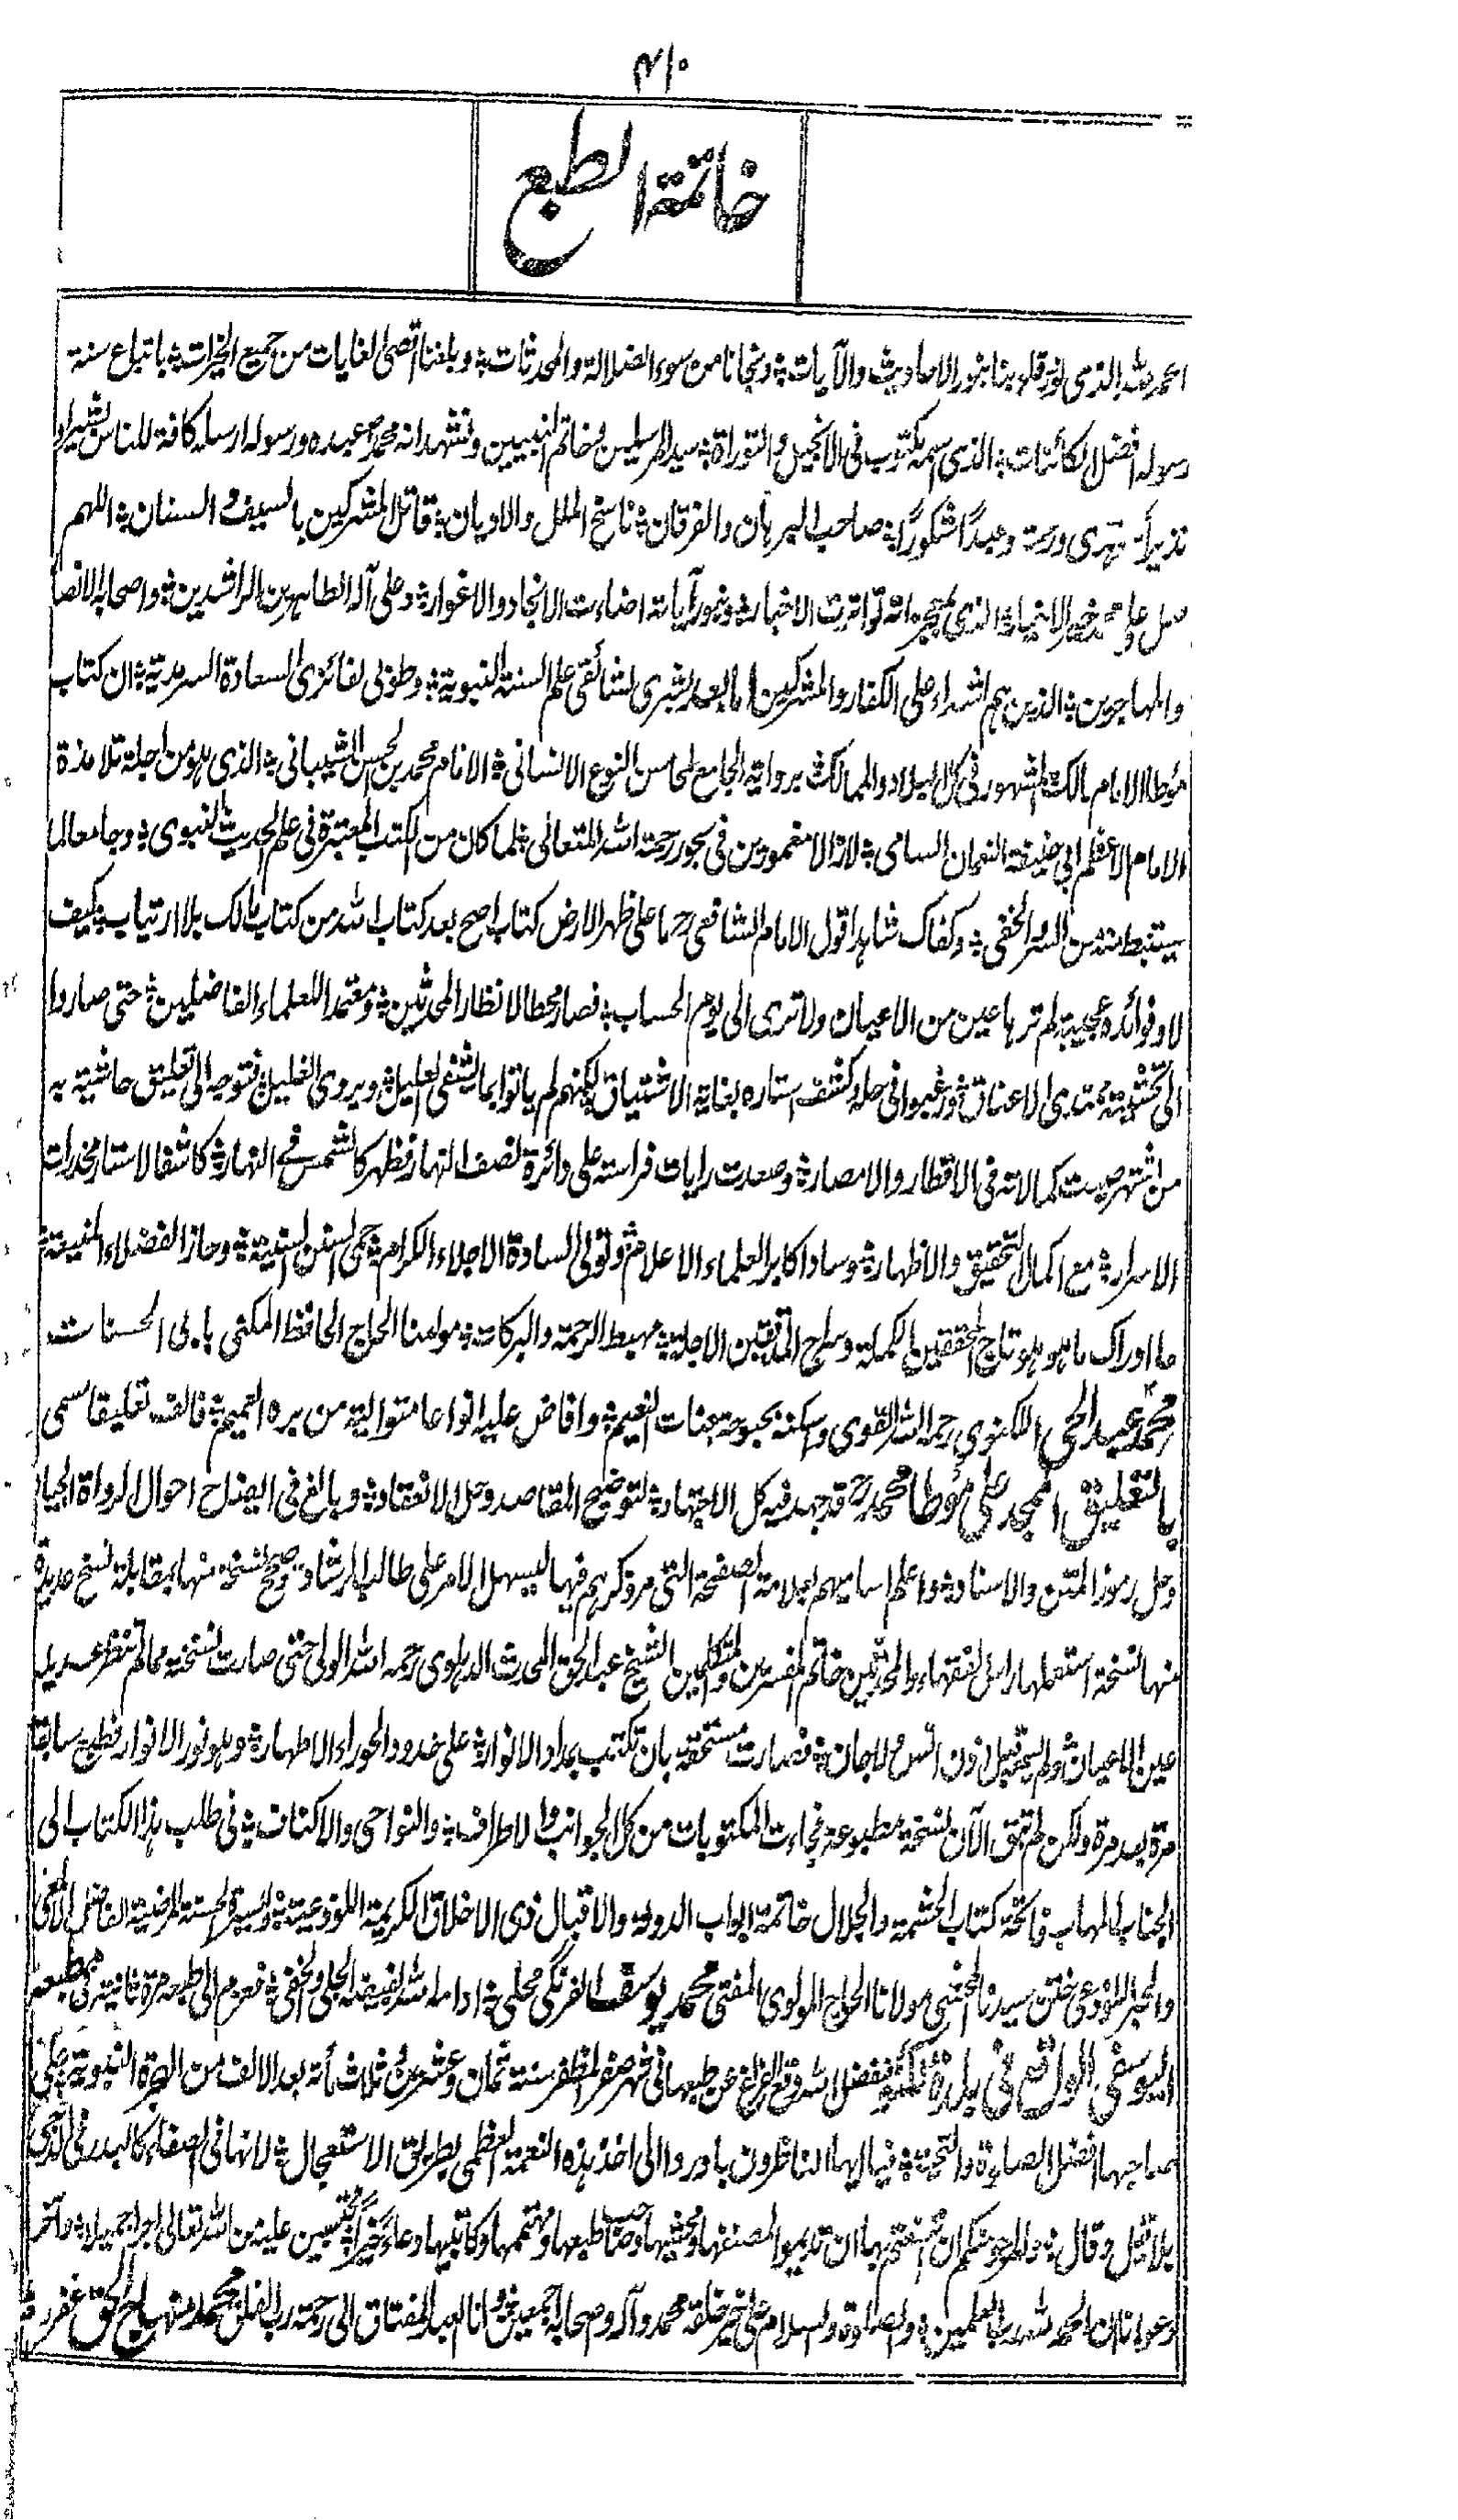 ٤١٠
خاتمة الطبع
الحمد لله الذي نور قلوبنا بنور الاحاديث والآيات ونجانا من سوء الضلالة والمحدثات وبلغنا اقصى الغايات من جميع الخيرات باتباع سنة
رسوله افضل الكائنات الذي اسمه مكتوب في الانجيل والتوراة سيد المرسلين وخاتم النبيين ونشهد انه محمد عبده ورسوله ارسله كافة للناس بشيرا و
نذيرا وهدى ورحمة وعبدا شكورا صاحب البرهان والفرقان ناسخ الملل والاديان قاتل المشركين بالسيف والسنان اللهم
صل على محمد خير الانبياء الذي بمعجزاته تواترت الاخبار وبنور آياته اضاءت الانجاد والاغوار وعلى آله الطاهرين الراشدين واصحابه الانصار
والمهاجرين الذين هم اشداء على الكفار والمشركين اما بعد بشرى لشائقي علم السنة النبوية وطوبى لفائزي السعادة السرمدية ان كتاب
مؤطا الامام مالك المشهور في كل البلاد والممالك برواية الجامع لمحاسن النوع الانساني الامام محمد بن الحسن الشيباني الذي هو من اجلة تلامذة
الامام الاعظم ابي حنيفة النعمان السامي لازالا مغمورين في بحور رحمة الله المتعالى لما كان من الكتب المعتبرة في علم الحديث النبوي وجامعا لما
يستنبط منه من السر الخفي وكفاك شاهدا قول الامام الشافعي رح ما على ظهر الارض كتاب اصح بعد كتاب الله من كتاب مالك بلا ارتياب كيف
لا وفوائده عجيبة لم ترها عين من الاعيان ولا ترى الى يوم الحساب فصار محطا لانظار المحدثين ومعتمدا للعلماء الفاضلين حتى صاروا
الى تحشيته ممتدي الاعناق ورغبوا في حله وكشف استاره بغاية الاشتياق لكنهم لم ياتوا بما يشفي العليل ويروي الغليل فتوجه الى تعليق حاشية به
من اشتهر صيت كمالاته في الاقطار والامصار وصعدت رايات فراسته على دائرة نصف النهار فظهر كالشمس في النهار كاشفا لاستار مخدرات
الاسرار مع اكمال التحقيق والاظهار وساد اكابر العلماء الاعلام وتولى السادة الاجلاء الكرام محي السنن السنية وحاز الفضلاء المنيعة
ما ادراك ما هو هو تاج المحققين الكملة وسراج المدققين الاجلة مهبط الرحمة والبركات مولانا الحاج الحافظ المكنى بابي الحسنات
محمد عبد الحي اللكنوي رحمه الله القوي واسكنه بحبوحة جنات النعيم وافاض عليه انواعا متوالية من بره العميم فالف تعليقا سمي
بالتعليق الممجد على مؤطا محمد رح قد جهد فيه كل الاجتهاد لتوضيح المقاصد وحل الانعقاد وبالغ في ايضاح احوال الرواة الجياد
وحل رموز المتن والاسناد واعلم اساميهم بعلامة الصفحة التي مر ذكرهم فيها ليسهل الامر على طالب الرشاد وصحح نسخة منها بمقابلة نسخ عديدة
منها نسخة استعملها راس الفقهاء والمحدثين خاتم المفسرين والمتكلمين الشيخ عبد الحق المحدث الدهلوي رحمه الله الولي حتى صارت نسخته مما لم تنظر عديله
عين الاعيان ولم يسمع قبل اذن انس ولا جان فصارت مستحقة بان تكتب بمداد الانوار على خدود الحوراء الاطهار وهو نور الانوار فطبع سابقا
مرة بعد مرة ولكن لم تبق الآن نسخة مطبوعة فجاءت المكتوبات من كل الجوانب والاطراف والنواحي والاكناف في طلب هذا الكتاب الى
الجناب المهاب فاتحة كتاب الحشمة والجلال خاتمة ابواب الدولة والاقبال ذي الاخلاق الكريمة اللوذعية والسيرة الحسنة المرضية الفاضل الالمعي
والحبر اللوذعي ختن سيدنا المحشي مولانا الحاج المولوي المفتي محمد يوسف الفرنگي محلي ادامه الله لفيضه الجلي والخفي فعزم الى طبعه مرة ثانية في مطبعه
اليوسفي الواقع في بلدة لكهنؤ فبفضل الله وقع الفراغ عن طبعها في شهر صفر المظفر سنة ثمان وعشرين وثلاث مأة بعد الالف من الهجرة النبوية على
صاحبها افضل الصلوة والتحية فيا ايها الناظرون بادروا الى اخذ هذه النعمة العظمى بطريق الاستعجال لانها في الصفاء كالبدر في الدجى
بلا قيل وقال والمرجو منكم ان انتفعتم بها ان تديموا لمصنفها ومحشيها وصاحب طبعها ومهتمها وكاتبها دعاء خيرا محتسبين عليه من الله تعالى اجرا جميلا وآخر
دعوانا ان الحمد لله رب العلمين والصلوة والسلام على خير خلقه محمد وآله وصحابه اجمعين وانا العبد المفتاق الى رحمة رب الفلق محمد منهاج الحق غفر له